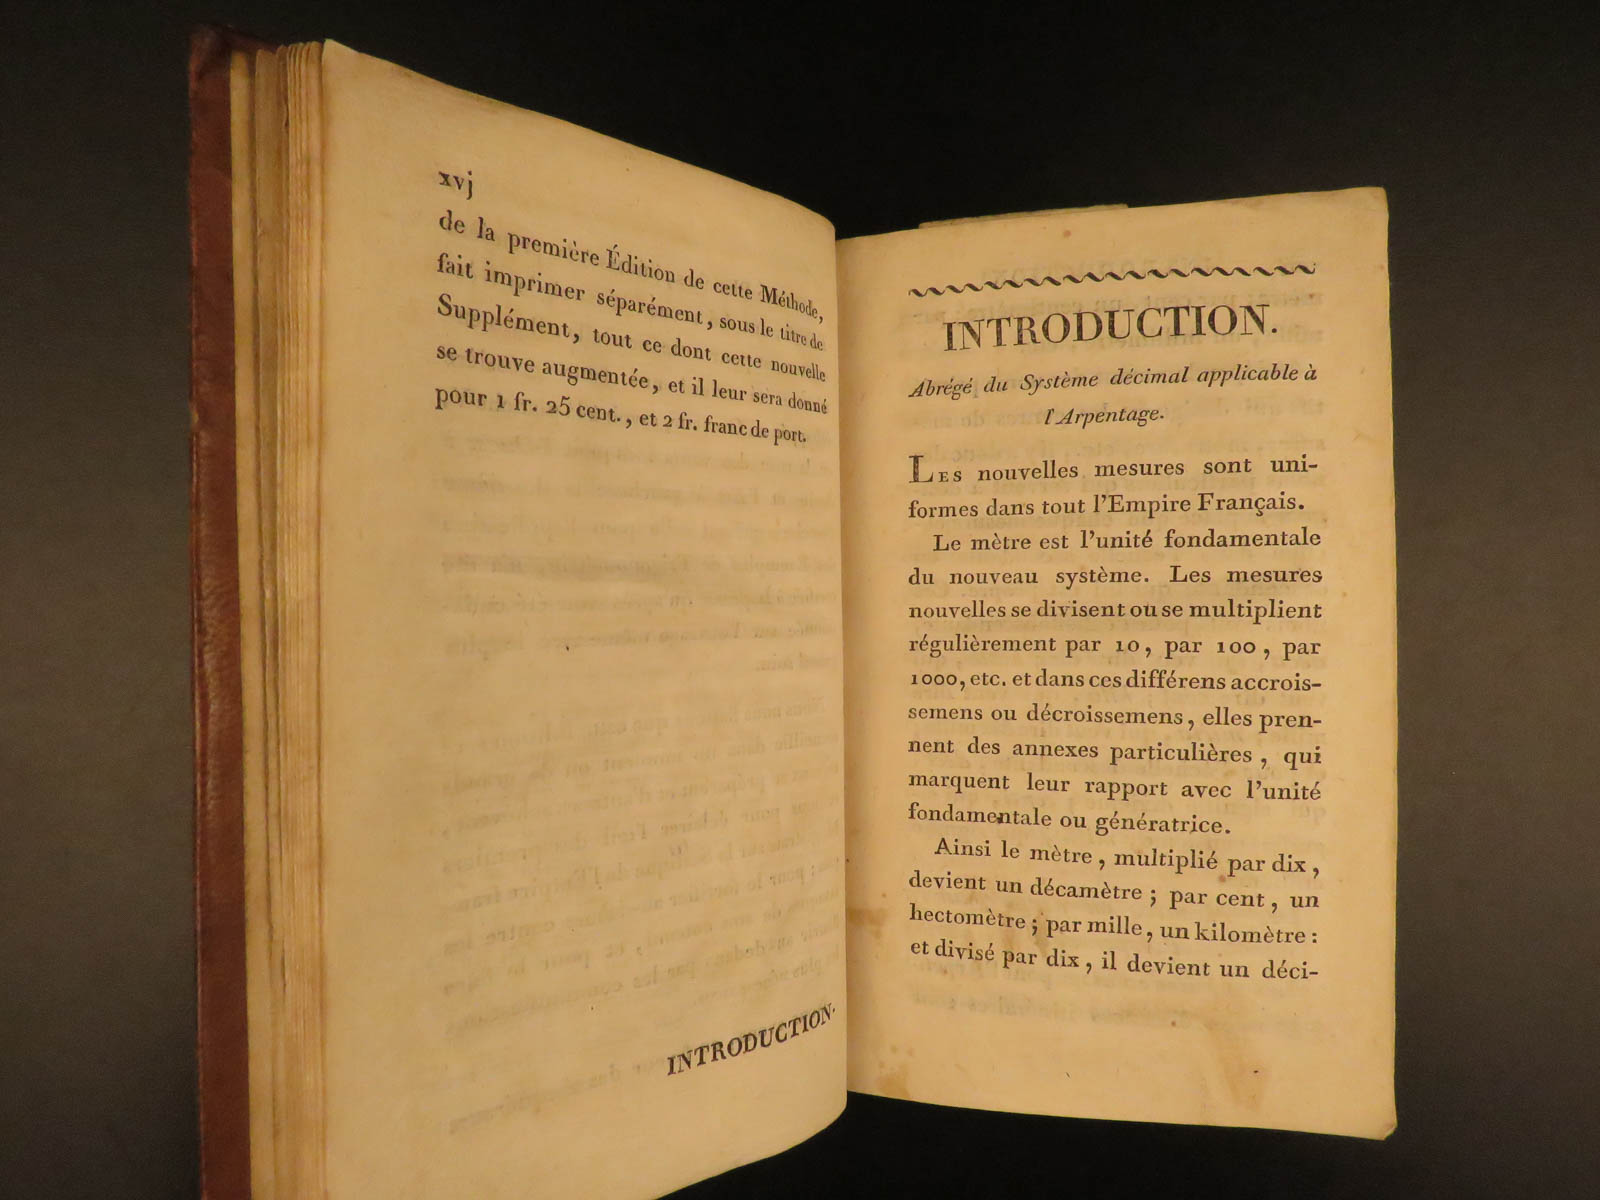 xvj
de la première Édition de cette Méthode,
fait imprimer séparément, sous le titre de
Supplément, tout ce dont cette nouvelle
se trouve augmentée, et il leur sera donné
pour 1 fr. 25 cent., et 2 fr. franc de port.
INTRODUCTION.
INTRODUCTION.
Abrégé du Système décimal applicable à
l'Arpentage.
LES nouvelles mesures sont uni-
formes dans tout l'Empire Français.
Le mètre est l'unité fondamentale
du nouveau système. Les mesures
nouvelles se divisent ou se multiplient
régulièrement par 10, par 100, par
1000, etc. et dans ces différens accrois-
semens ou décroissemens, elles pren-
nent des annexes particulières, qui
marquent leur rapport avec l'unité
fondamentale ou génératrice.
Ainsi le mètre, multiplié par dix,
devient un décamètre; par cent, un
hectomètre; par mille, un kilomètre:
et divisé par dix, il devient un déci-